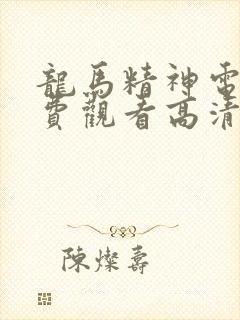 龍馬精神電
費觀看高清
陳燦壽